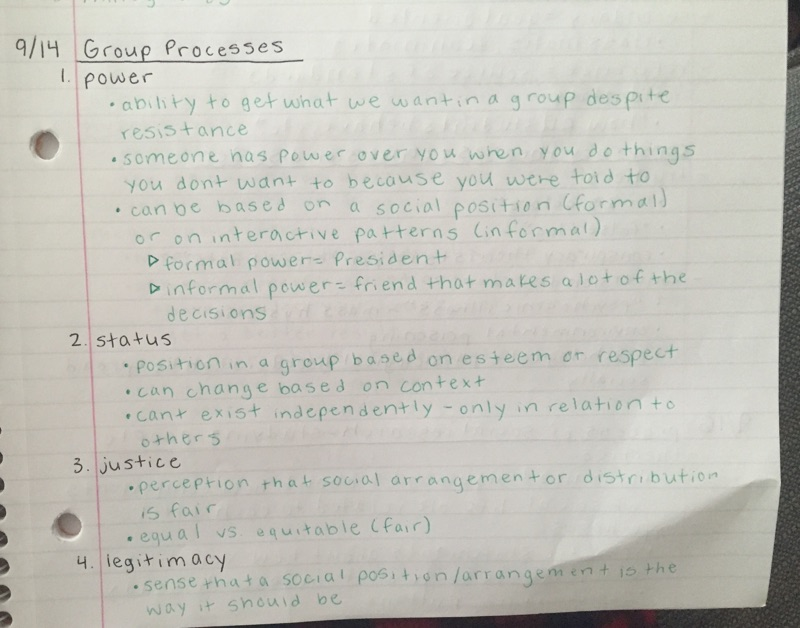 9/14 Group Processes
1. power
• ability to get what we want in a group despite
resistance
• someone has power over you when you do things
you dont want to because you were told to
• can be based on a social position (formal)
or on interactive patterns (informal)
▷ formal power = President
▷ informal power = friend that makes a lot of the
decisions
2. status
• position in a group based on esteem or respect
• can change based on context
• cant exist independently - only in relation to
others
3. justice
• perception that social arrangement or distribution
is fair
• equal vs. equitable (fair)
4. legitimacy
• sense that a social position/arrangement is the
way it should be